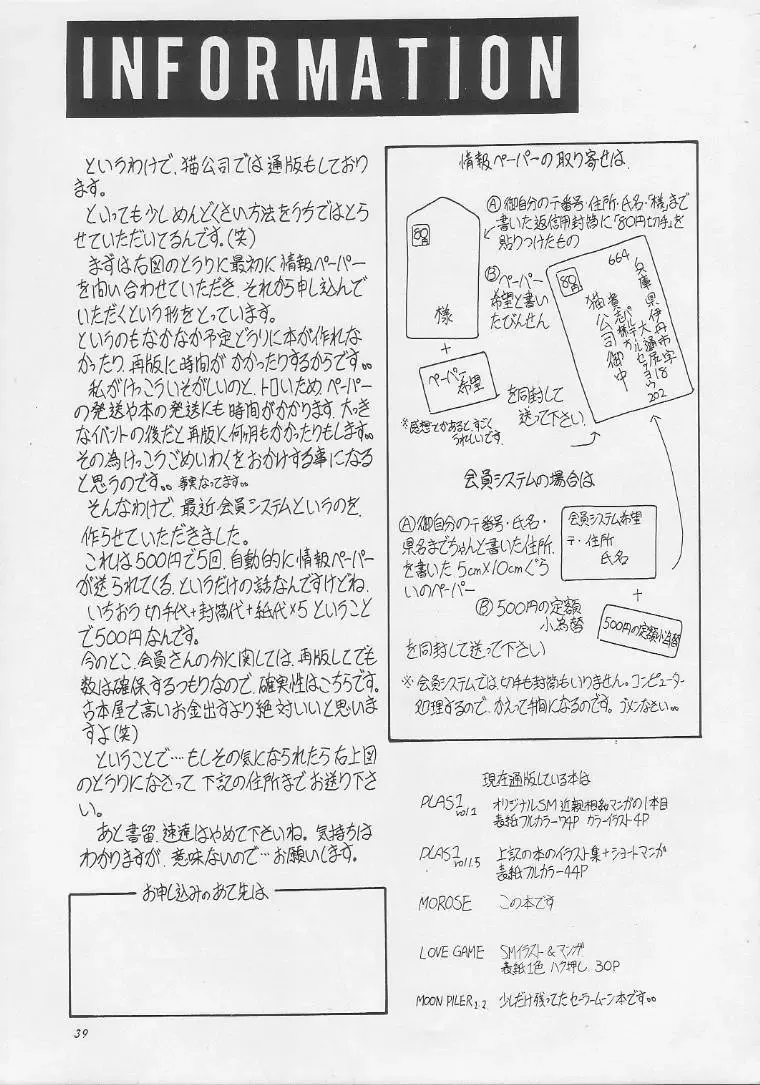 INFORMATION
というわけで、猫公司では通版もしており
ます。
といっても少しめんどくさい方法をうちではとら
せていただいてるんです。(笑)
まずは右図のとうりに最初に情報ペーパー
を問い合わせていただき、それから申し込んで
いただくという形をとっています。
というのもなかなか予定どうりに本が作れな
かったり、再版に時間がかかったりするからです。。
私がけっこういそがしいのと、トロいため、ペーパー
の発送や本の発送にも時間がかかります、大っき
なイベントの後だと再版に何ヶ月もかかったりもします。。
その為けっこうごめいわくをおかけする事になる
と思うのです。。事実なってます。。
そんなわけで、最近会員システムというのを、
作らせていただきました。
これは500円で5回、自動的に情報ペーパー
が送られてくる、というだけの話なんですけどね、
いちおう切手代+封筒代+紙代×5ということ
で500円なんです。
今のとこ、会員さんの分に関しては、再版してでも
数は確保するつもりなので、確実性はこちらです。
古本屋で高いお金出すより絶対いいと思いま
すよ(笑)
ということで…もしその気になられたら右上図
のとうりになさって下記の住所までお送り下さ
い。
あと書留、速達はやめて下さいね。気持ちは
わかりますが、意味ないので…お願いします。
お申し込みのあて先は
39
情報ペーパーの取り寄せは、
Ⓐ御自分の〒番号・住所・氏名・「様」まで
書いた返信用封筒に「80円切手」を
貼りつけたもの
80円
様
+
Ⓑペーパー
希望と書い
たびんせん
ペーパー
希望
を同封して
送って下さい
※感想とかあると、すごく
うれしいです。
80円
664
兵庫県伊丹市字
大通尻18
202
猫公司御中
会員システムの場合は
Ⓐ御自分の〒番号・氏名・
県名までちゃんと書いた住所、
を書いた5cm×10cmぐら
いのペーパー
会員システム希望
〒・住所
氏名
+
Ⓑ500円の定額
小為替
500円の定額小為替
を同封して送って下さい
※会員システムでは、切手も封筒もいりません。コンピューター
処理するので、かえって手間になるのです。ゴメンなさい。。
現在通版している本は
PLAS1 vol.1 オリジナルSM近親相姦マンガの1本目
表紙フルカラー74P カラーイラスト4P
PLAS1 vol1.5 上記の本のイラスト集+ショートマンガ
表紙フルカラー44P
MOROSE この本です
LOVE GAME SMイラスト&マンガ
表紙1色 ハク押し 30P
MOON PILER 1.2 少しだけ残ってたセーラームーン本です。。